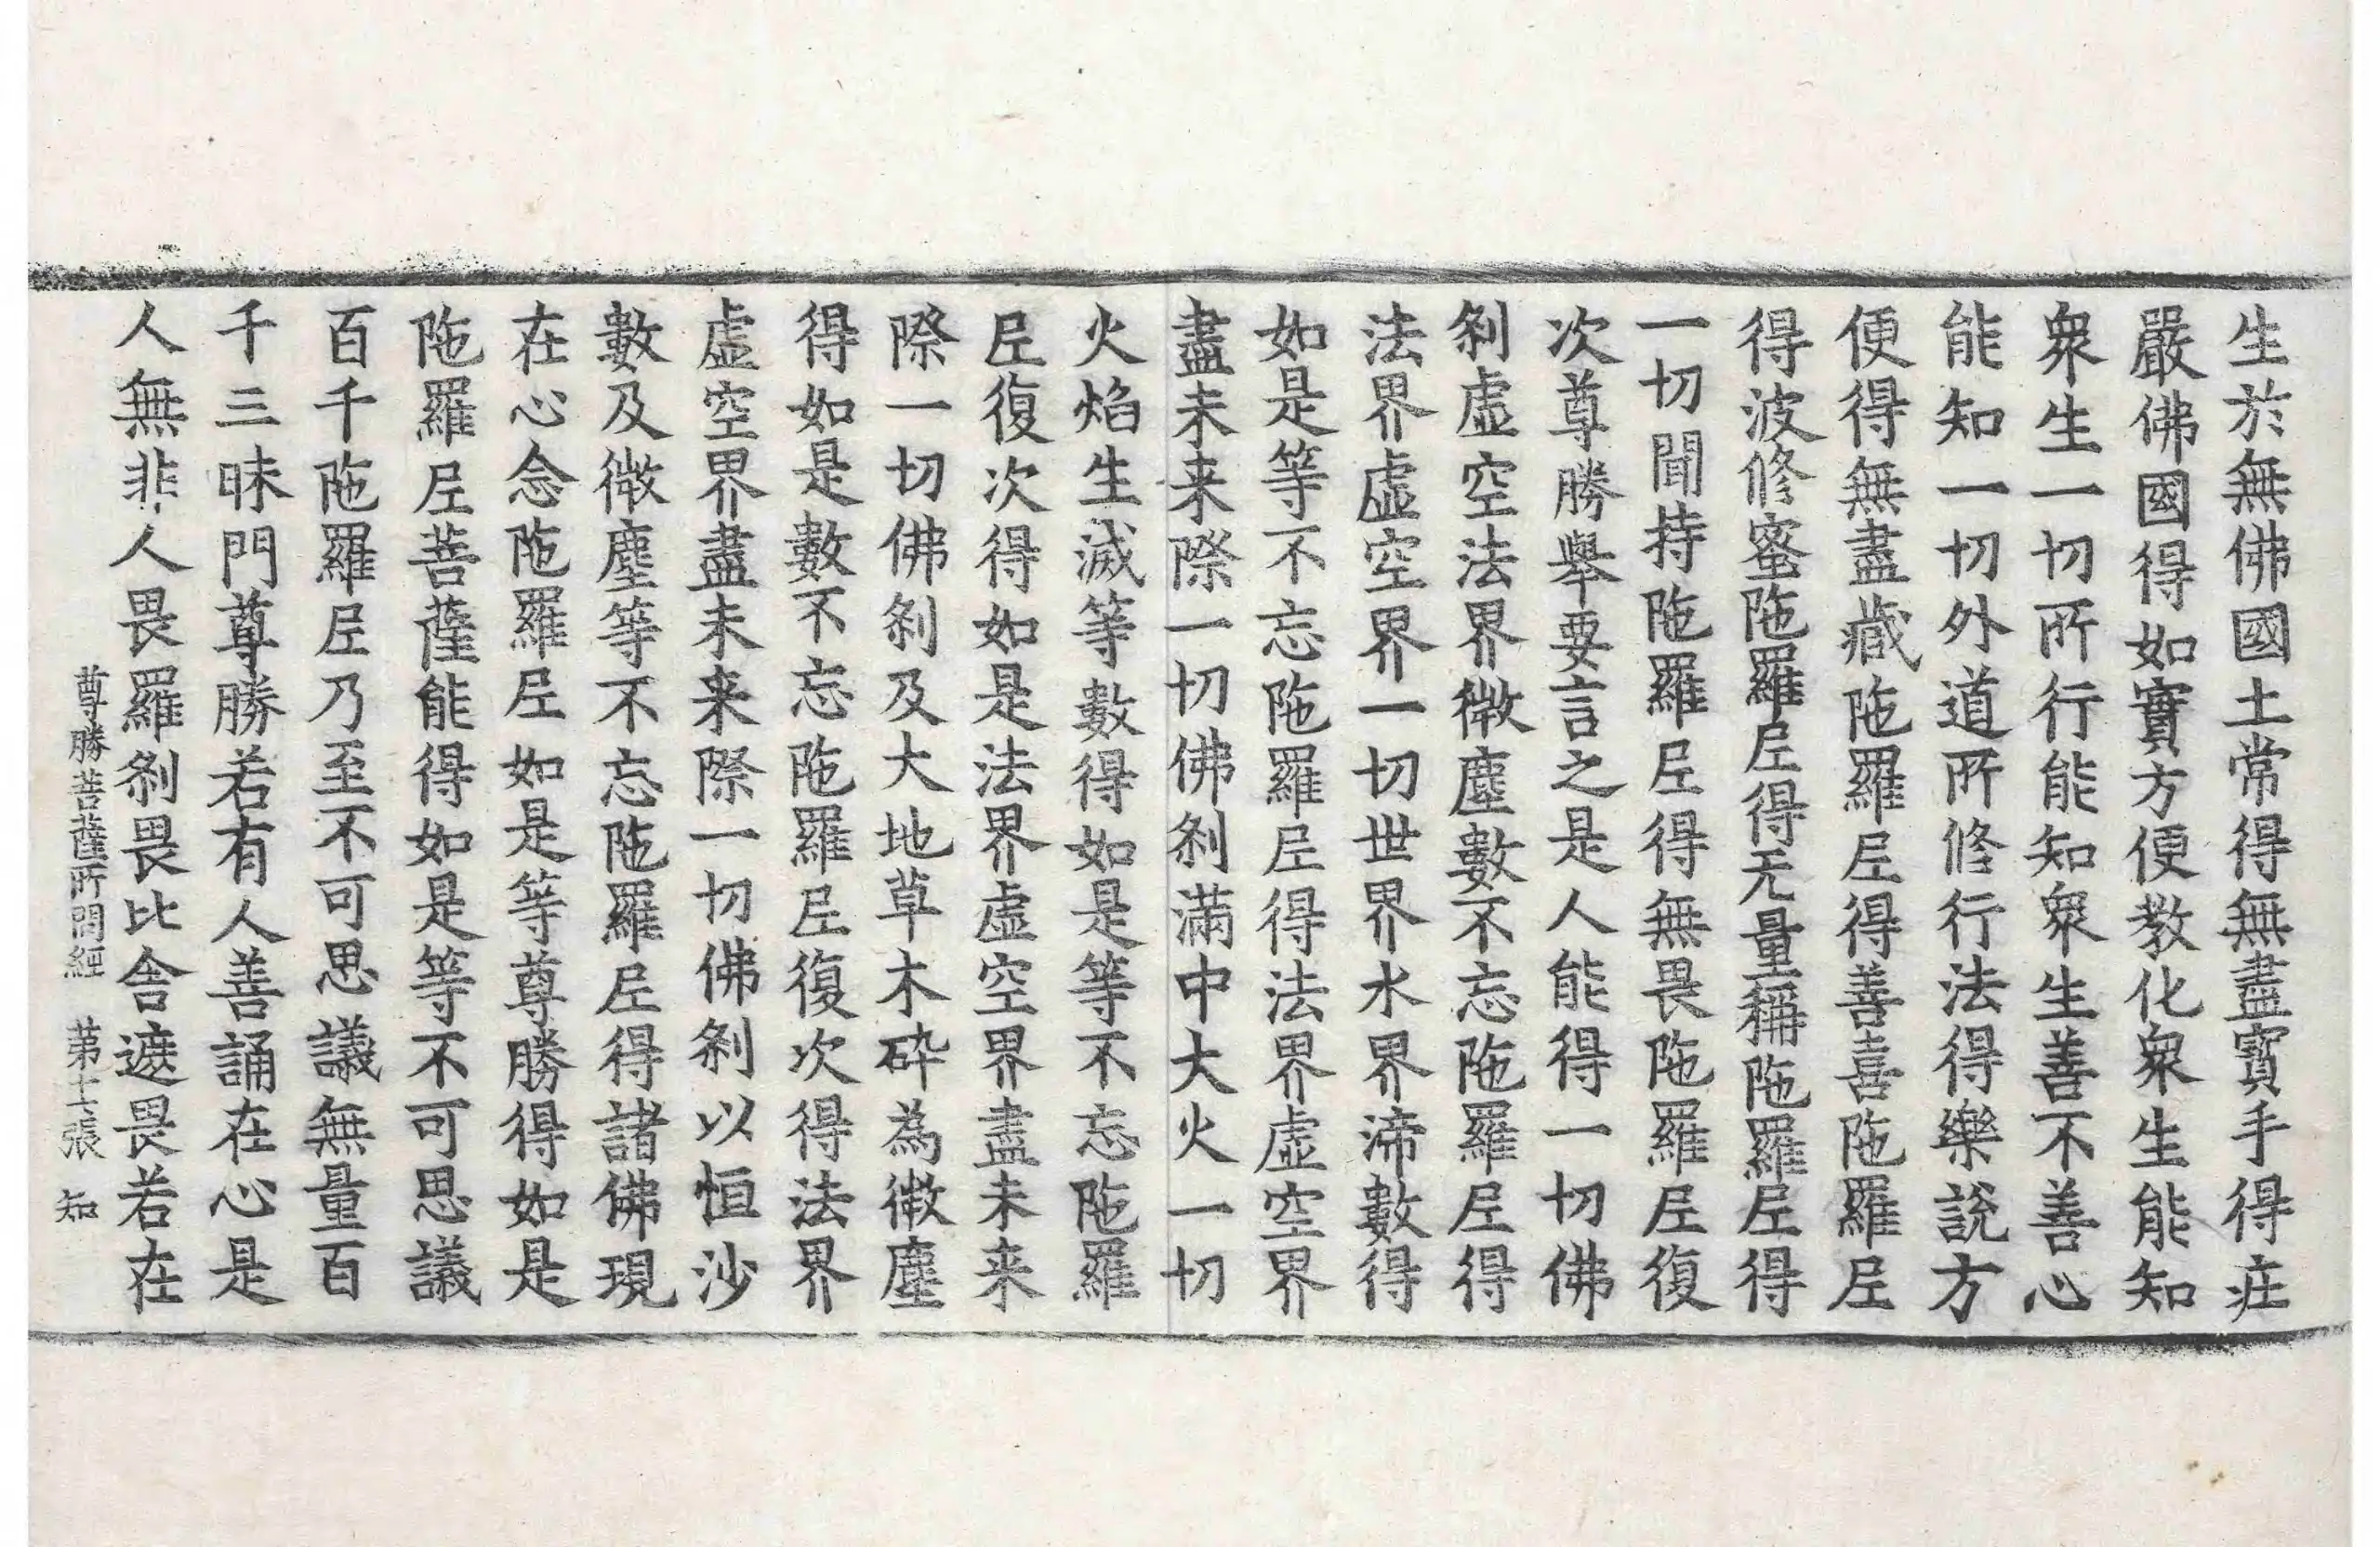 生於無佛國土常得無盡寶手得疘
嚴佛國得如實方便教化衆生能知
衆生一切所行能知衆生善不善心
能知一切外道所修行法得樂說方
便得無盡藏陁羅𡰱得善喜陁羅𡰱
得波修蜜陁羅𡰱得无量稱陁羅𡰱得
一切聞持陁羅𡰱得無畏陁羅𡰱復
次尊勝舉要言之是人能得一切佛
刹虛空法界微塵數不忘陁羅𡰱得
法界虛空界一切世界水界渧數得
如是等不忘陁羅𡰱得法界虛空界
盡未来際一切佛刹滿中大火一切
火焰生滅等數得如是等不忘陁羅
𡰱復次得如是法界虛空界盡未来
際一切佛刹及大地草木碎為微塵
得如是數不忘陁羅𡰱復次得法界
虛空界盡未来際一切佛刹以恒沙
數及微塵等不忘陁羅𡰱得諸佛現
在心念陁羅𡰱如是等尊勝得如是
陁羅𡰱菩薩能得如是等不可思議
百千陁羅𡰱乃至不可思議無量百
千三昧門尊勝若有人善誦在心是
人無非人畏羅刹畏比舍遮畏若在
尊勝菩薩所問經 苐十二張 知